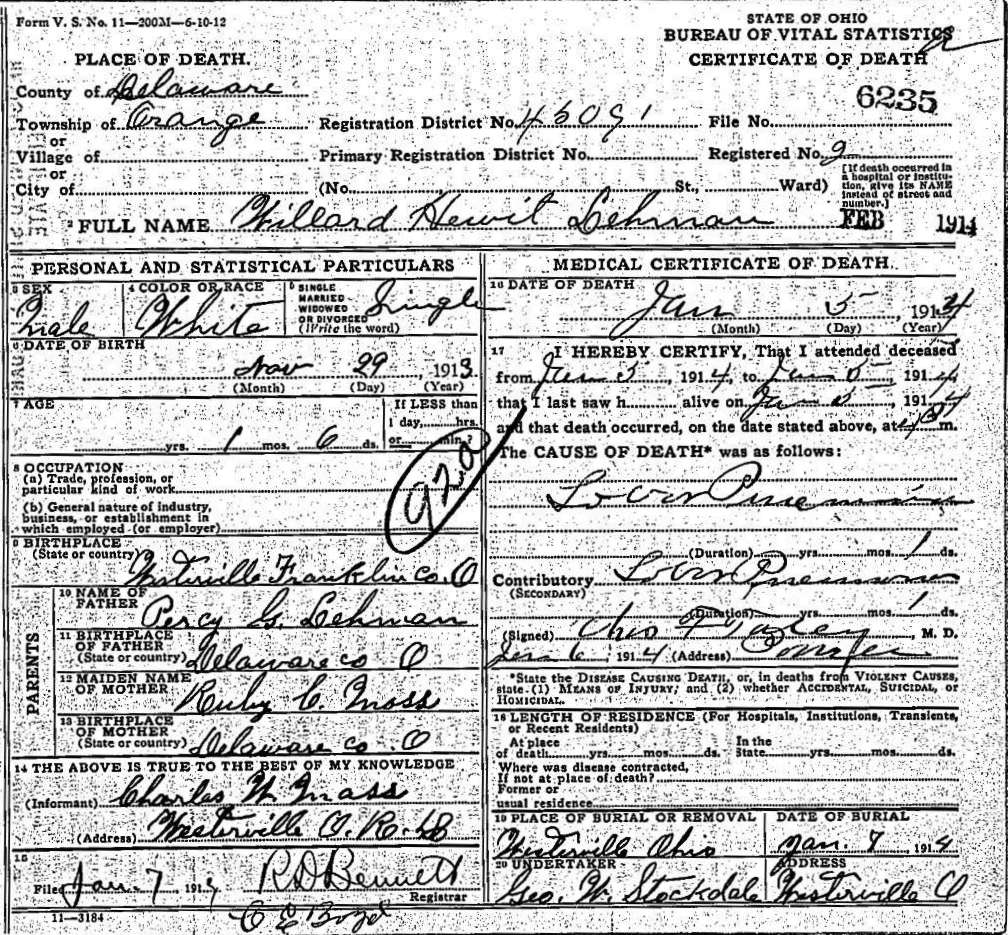 Form V. S. No. 11—200M—6-10-12
STATE OF OHIO
BUREAU OF VITAL STATISTICS
CERTIFICATE OF DEATH
PLACE OF DEATH.
County of Delaware
6235
Township of Orange Registration District No. 45091 File No.
or
Village of Primary Registration District No. Registered No. 2
or
City of (No. St., Ward)
[If death occurred in
a hospital or institu-
tion, give its NAME
instead of street and
number.]
FEB 1914
2 FULL NAME Willard Hewit Lehman
PERSONAL AND STATISTICAL PARTICULARS
3 SEX
Male
4 COLOR OR RACE
White
5 SINGLE
MARRIED
WIDOWED
OR DIVORCED
(Write the word)
Single
6 DATE OF BIRTH
Nov 29, 1913
(Month) (Day) (Year)
7 AGE
yrs. 1 mos. 6 ds.
If LESS than
1 day, hrs.
or min.?
92a
8 OCCUPATION
(a) Trade, profession, or
particular kind of work
(b) General nature of industry,
business, or establishment in
which employed (or employer)
9 BIRTHPLACE
(State or country)
Westerville Franklin co. O
PARENTS
10 NAME OF
FATHER
Percy G. Lehman
11 BIRTHPLACE
OF FATHER
(State or country)
Delaware co O
12 MAIDEN NAME
OF MOTHER
Ruby C. Moss
13 BIRTHPLACE
OF MOTHER
(State or country)
Delaware co. O
14 THE ABOVE IS TRUE TO THE BEST OF MY KNOWLEDGE
(Informant) Charles W Moss
(Address) Westerville O R.
15
Filed Jan. 7 1914 R D Bennett
Registrar
11—3184
C E Boyd
MEDICAL CERTIFICATE OF DEATH
16 DATE OF DEATH
Jan 5, 1914
(Month) (Day) (Year)
17 I HEREBY CERTIFY, That I attended deceased
from Jan 3, 1914, to Jan 5, 1914
that I last saw h alive on Jan 5, 1914
and that death occurred, on the date stated above, at 4 m.
The CAUSE OF DEATH* was as follows:
Lobar Pneumonia
(Duration) yrs. mos. 1 ds.
Contributory Lobar Pneumonia
(SECONDARY)
(Duration) yrs. mos. 1 ds.
(Signed) Chas, M. D.
Jan 6, 1914 (Address)
*State the DISEASE CAUSING DEATH, or, in deaths from VIOLENT CAUSES,
state (1) MEANS OF INJURY; and (2) whether ACCIDENTAL, SUICIDAL, or
HOMICIDAL.
18 LENGTH OF RESIDENCE (For Hospitals, Institutions, Transients,
or Recent Residents)
At place
of death yrs. mos. ds.
In the
State yrs. mos. ds.
Where was disease contracted,
If not at place of death?
Former or
usual residence
19 PLACE OF BURIAL OR REMOVAL
Westerville Ohio
DATE OF BURIAL
Jan. 7 1914
20 UNDERTAKER
Geo. W. Stockdale
ADDRESS
Westerville O